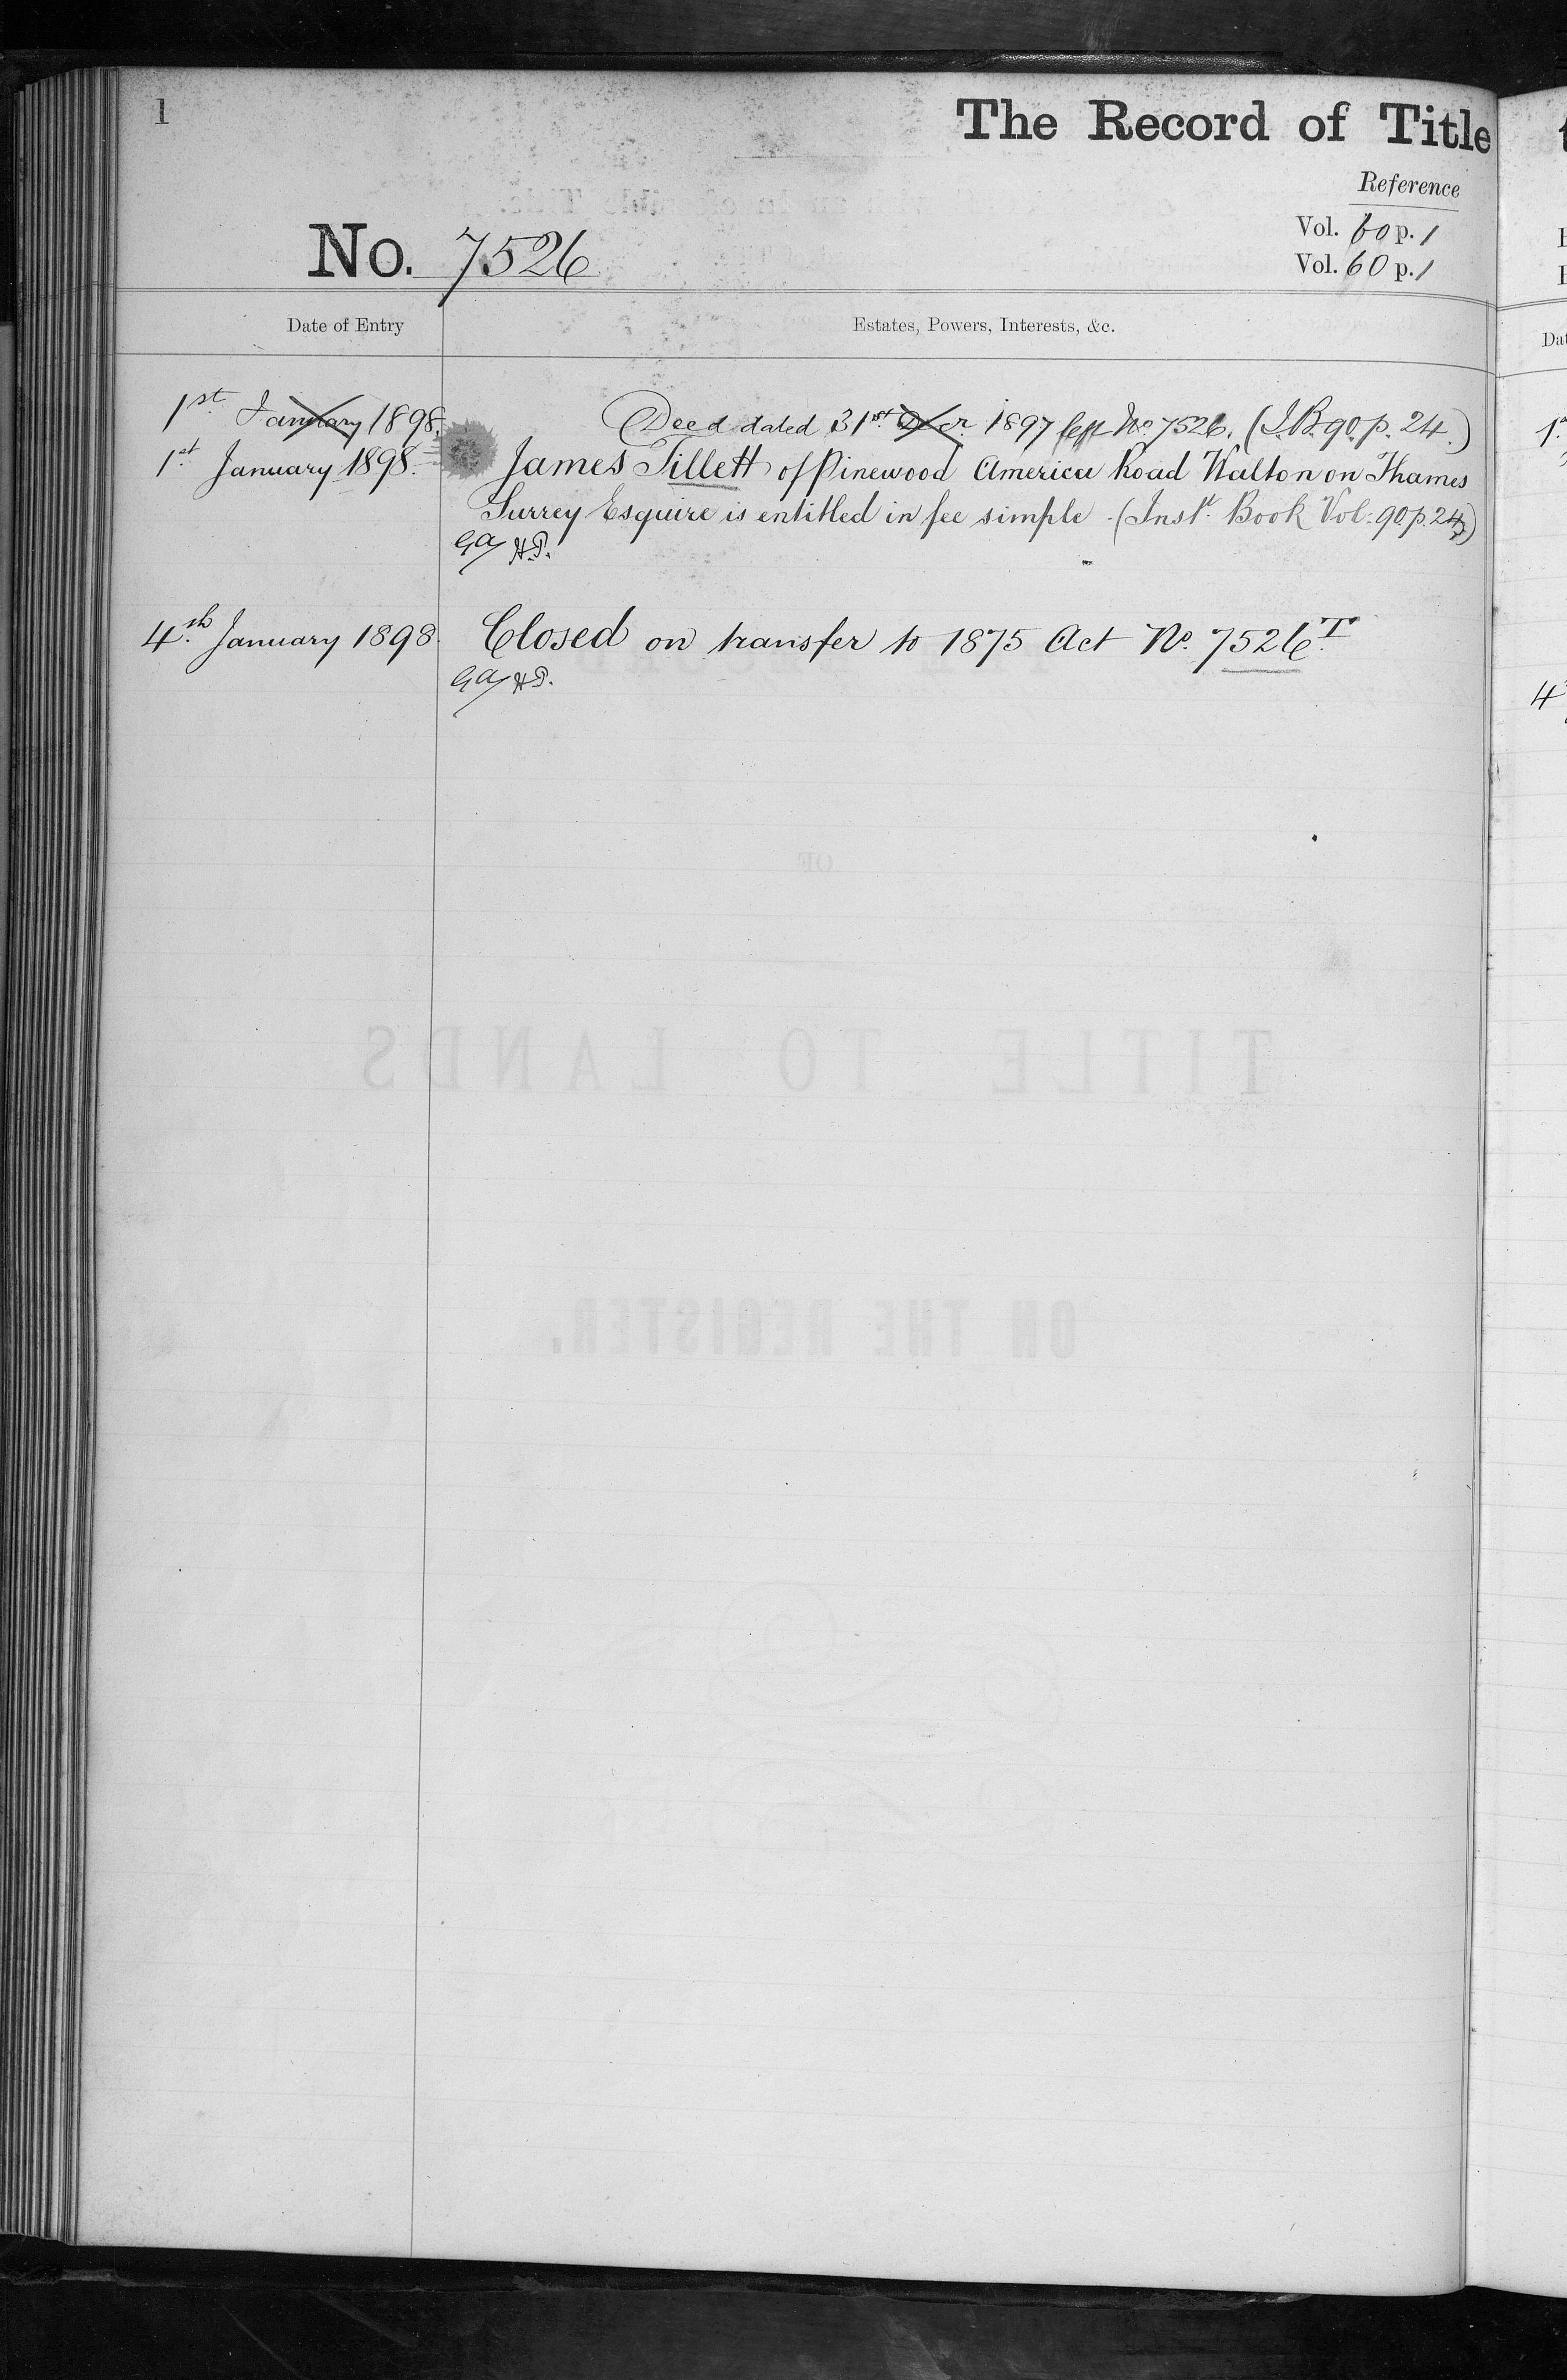 1
The Record of Title
Reference
Vol. 60 p. 1
Vol. 60 p. 1
No. 7526
Date of Entry
Estates, Powers, Interests, &c.
1st January 1898.
Deed dated 31st Decr 1897 No. 7526. (I.B. 90. p. 24.)
1st January 1898.
James Tillett of Pinewood America Road Walton on Thames
Surrey Esquire is entitled in fee simple (Inst. Book Vol: 90 p. 24)
GA/ H.P.
4th January 1898
Closed on transfer to 1875 Act No. 7526 T.
GA/ H.P.
OF
TITLE TO LANDS
ON THE REGISTER.